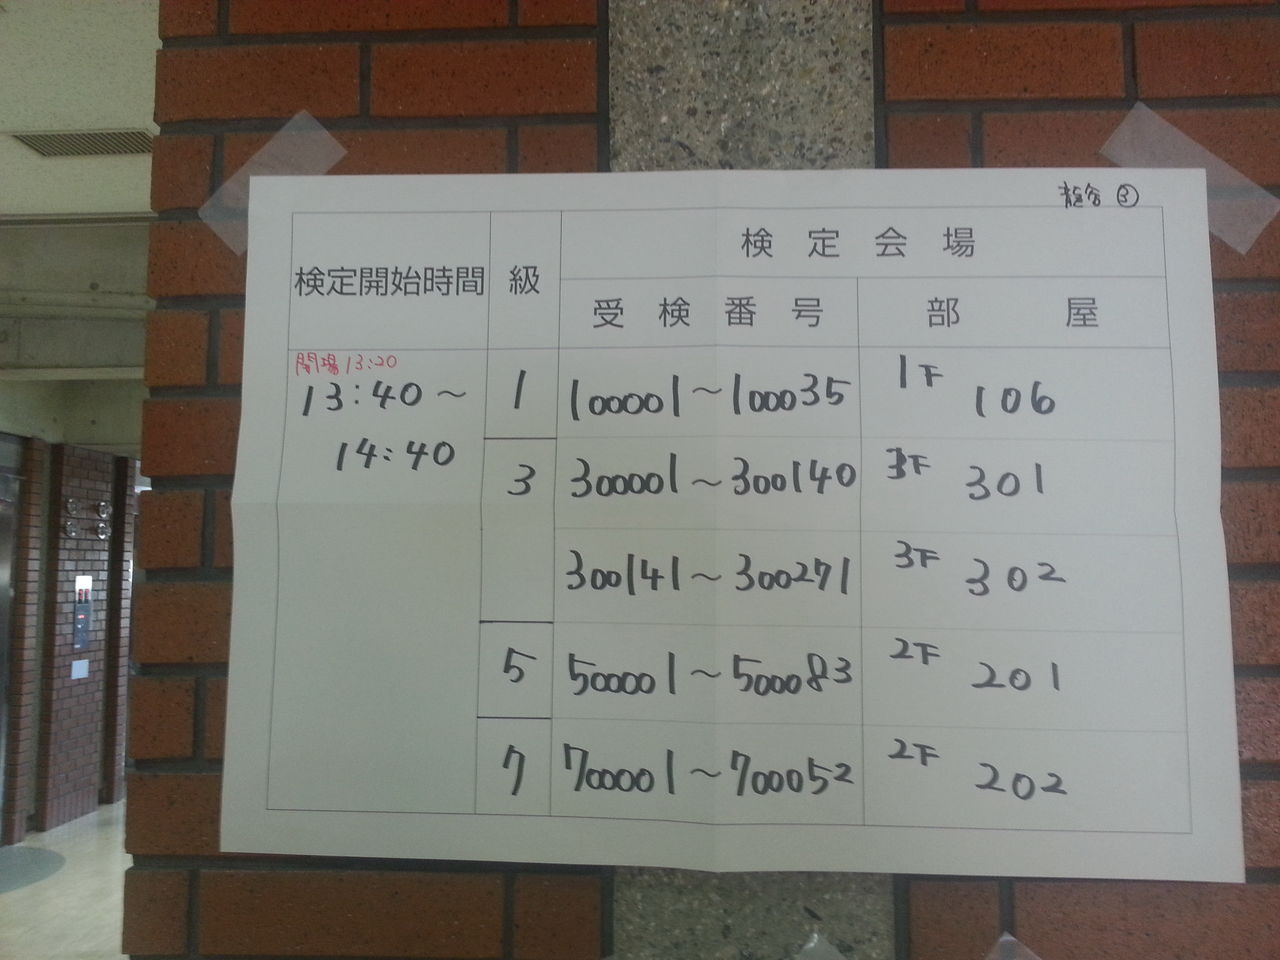 龍谷 ③
検定開始時間 級 検定会場
受検番号 部屋
開場13:20
13:40~
14:40
1 100001~100035 1F 106
3 300001~300140 3F 301
300141~300271 3F 302
5 500001~500083 2F 201
7 700001~700052 2F 202